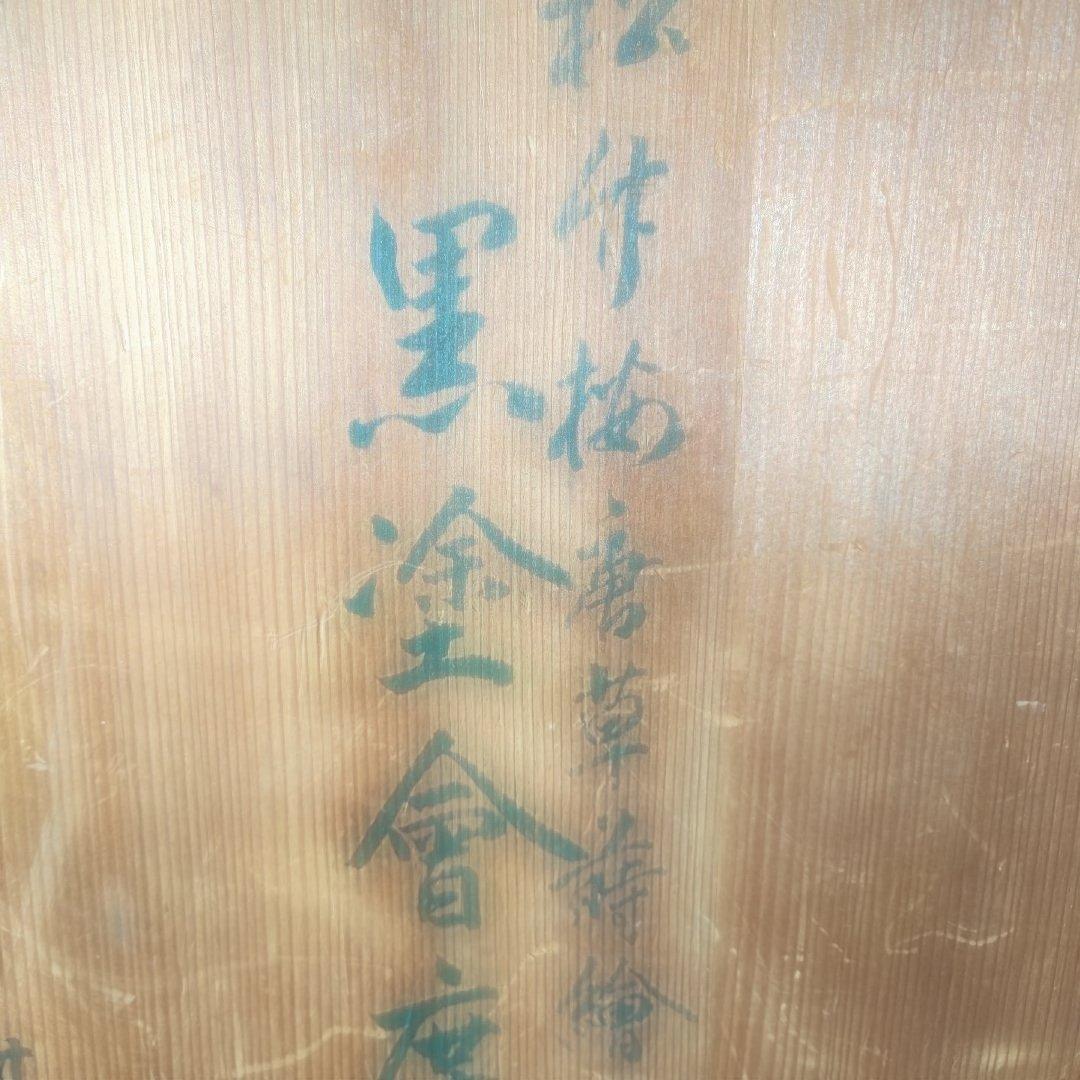 松竹梅唐草蒔繪
黒塗會席